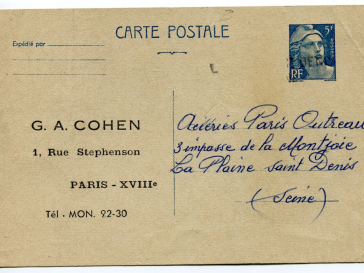 CARTE POSTALE
Expédié par
5F
RF
G. A. COHEN
1, Rue Stephenson
PARIS - XVIIIe
Tél - MON. 92-30
Aciéries Paris Outreau
3 impasse de la Montjoie
La Plaine Saint Denis
(Seine)